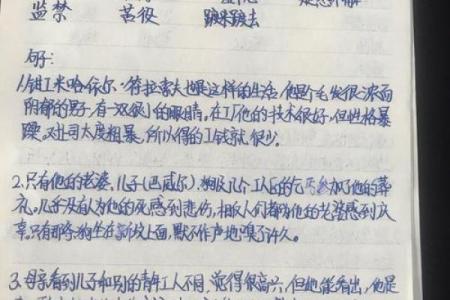 监禁 苦役 踱来踱去
句子:
1.钳工米哈依尔·符拉索夫也是这样的生活,他是个毛发很浓,面
阴郁的男子,有一双很小的眼睛。在工厂他的技术很好,但性格暴
躁,对上司大度粗暴,所以得的工钱就很少。
2.只有他的老婆、儿子(巴威尔)、狗及几个工人参加了他的葬
礼。几乎没有人为他的死感到悲伤,相反人们都为他的老婆感到庆
幸。只有那条狗坐在新坟上面,默不作声地嗅了许久。
3.母亲看到儿子和别的青年工人不同,觉得很高兴,但她能看出,他是